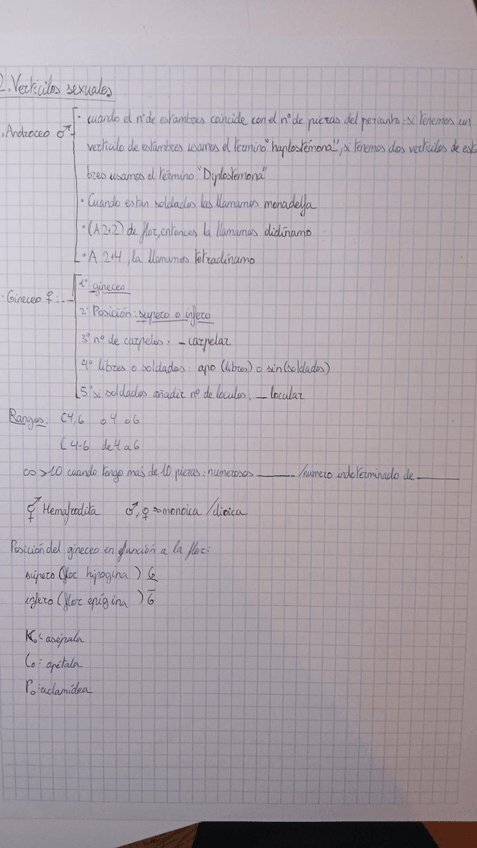 2. Verticilos sexuales
· cuando el nº de estambres coincide con el nº de piezas del perianto: si tenemos un
. Androceo ♂
verticilo de estambres usamos el término "haplostémona", si tenemos dos verticilos de estam
bres usamos el término "Diplostemona"
· Cuando están soldados las llamamos monadelfa
· (A 2+2) de flor, entonces la llamamos didínamo
· A 2+4, la llamamos tetradínamo
. Gineceo ♀: --
1º gineceo
2º Posición: súpero o ínfero
3º nº de carpelos: - carpelar
4º libres o soldados: apo (libres) o sin (soldados)
5º si soldados añadir nº de lóculos, _ locular
Rangos: C4,6 o 4 o 6
C4-6 de 4 a 6
∞ > 10 cuando tengo más de 10 piezas: numerosos ______ / número indeterminado de ______
⚥ Hemafrodita ♂, ♀ = monoica / dioica
Posición del gineceo en función a la flor:
súpero (flor hipógina ) G̲
ínfero (flor epígina ) G̅
K₀: asépala
C₀: apétala
P₀: aclamídea